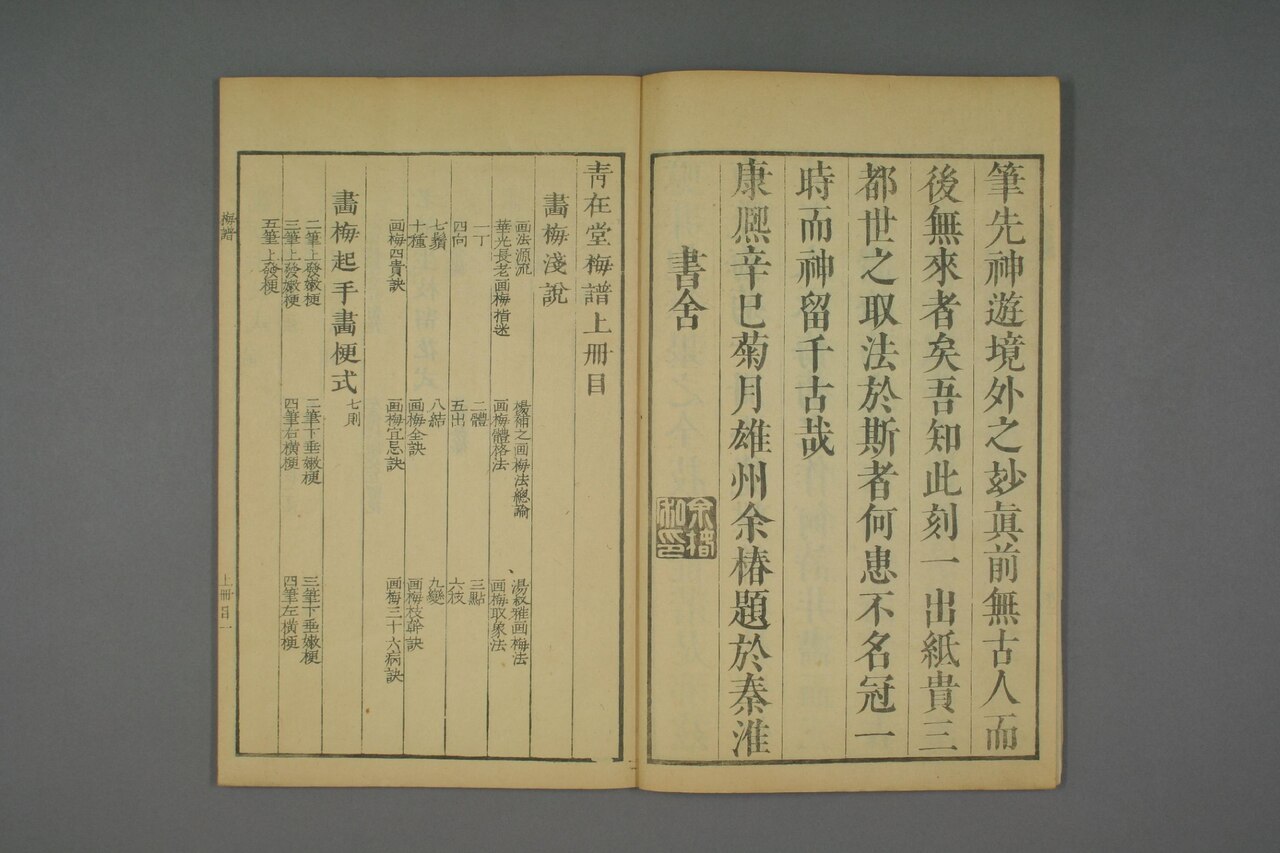 筆先神遊境外之玅眞前無古人而
後無來者矣吾知此刻一出紙貴三
都世之取法於斯者何患不名冠一
時而神留千古哉
康熈辛巳菊月雄州余椿題於秦淮
書舍
余椿
和印
靑在堂梅譜上冊目
畫梅淺說
画法源流 楊補之画梅法總論 湯叔雅画梅法
華光長老画梅指迷 画梅體格法 画梅取象法
一丁 二體 三點
四向 五出 六枝
七鬚 八結 九變
十種 画梅全訣 画梅枝幹訣
画梅四貴訣 画梅宜忌訣 画梅三十六病訣
畫梅起手畫梗式 七則
二筆上發嫩梗 二筆下垂嫩梗 三筆下垂嫩梗
三筆上發嫩梗 四筆右橫梗 四筆左橫梗
五筆上發梗
梅譜
上冊目一